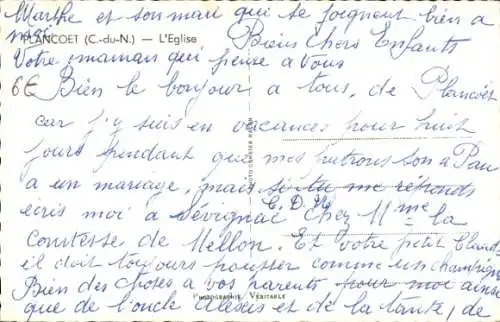 Marthe et son mari qui se joignent bien a
moi
PLANCOET (C.-du-N.) — L'Eglise
Biens Chers Enfants
Votre maman qui pense a vous
6€
Bien le bonjour a tous, de Plancoët
car j'y suis en vacances pour huit
jours pendant que mes patrons son a Pau
a un mariage, mais si tu me réponds
écris moi a Sévignac C.D.N. Chez Mme la
Comtesse de Mellon. Et votre petit Claude
il doit toujours pousser comme un champignon
Bien des choses a vos parents pour moi ainsi
que de l'oncle Alexis et de la tante, de
PHOTOGRAPHIE VÉRITABLE